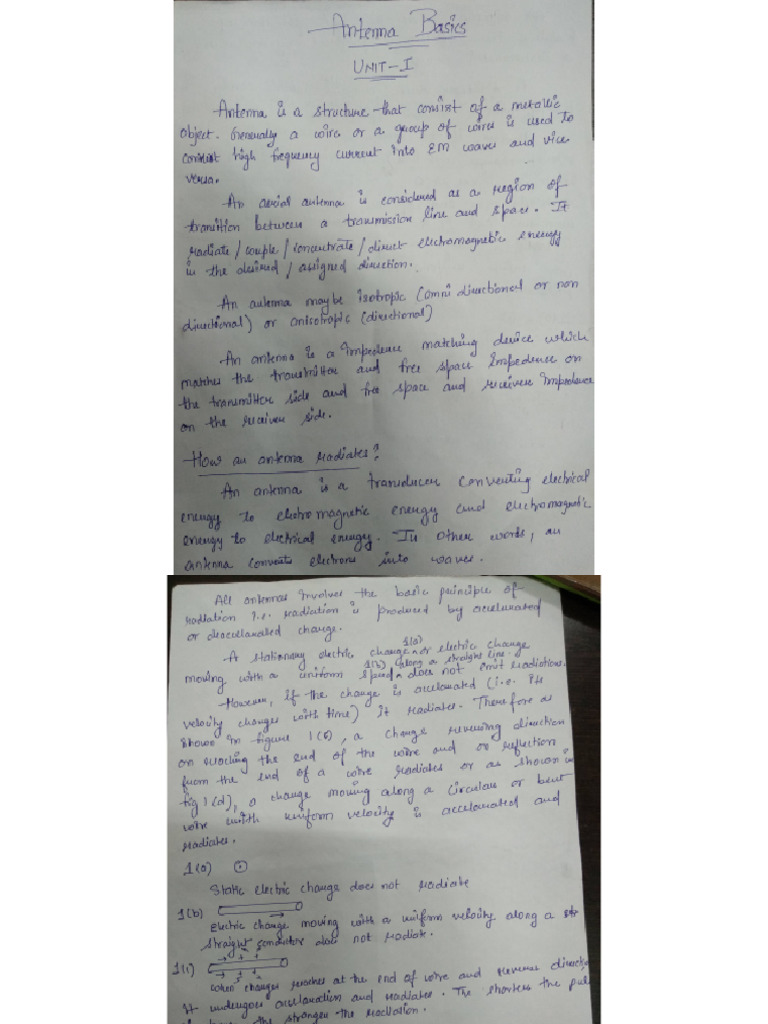 Antenna Basics
UNIT-I
Antenna is a structure that consist of a metallic
object. Generally a wire or a group of wires is used to
high frequency current into EM waves and vice
versa.
An aerial antenna is considered as a region of
transition between a transmission line and space. It
radiate/couple/concentrate/direct electromagnetic energy
in the desired/assigned direction.
An antenna maybe isotropic (omni directional or non
directional) or anisotropic (directional)
An antenna is a impedence matching device which
matches the transmitter and free space impedence on
the transmitter side and free space and receiver impedence
on the receiver side.
How an antenna radiates?
An antenna is a transducer converting electrical
energy to electromagnetic energy and electromagnetic
energy to electrical energy. In other words, an
antenna converts electrons into waves.
All antennas involves the basic principle of
radiation i.e. radiation is produced by accelerated
or deaccelarated charge.
A stationary electric charge 1(a) or electric charge
moving with a uniform speed 1(b) along a straight line does not emit radiations.
However, if the charge is accelarated (i.e. its
velocity changes with time) it radiates. Therefore as
shown in figure 1(c), a charge reversing direction
on reaching the end of the wire and or reflection
from the end of a wire radiates or as shown in
fig 1(d), a charge moving along a circular or bent
wire with uniform velocity is accelarated and
radiates.
1(a)
Static electric charge does not radiate
1(b)
Electric charge moving with a uniform velocity along a
straight conductor does not radiate.
1(c)
+ + +
+ + +
When charges reaches at the end of wire and reverse direction
it undergoes accelaration and radiates. The shorter the
the stronger the radiation.